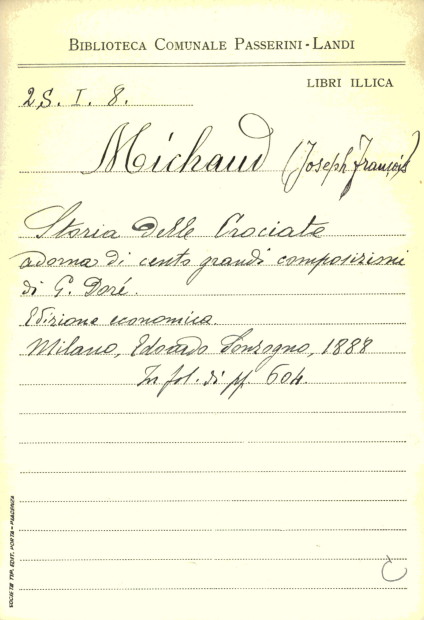 BIBLIOTECA COMUNALE PASSERINI-LANDI
LIBRI ILLICA
2S. I. 8.
Michaud (Joseph François)
Storia delle Crociate
adorna di cento grandi composizioni
di G. Doré.
Edizione economica.
Milano, Edoardo Sonzogno, 1888
In fol. di pp. 604.
SOCIETÀ TIP. EDIT. PORTA - PIACENZA
C